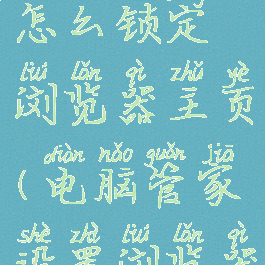 怎么锁定
liú lǎn qì zhǔ yè
浏览器主页
diàn nǎo guǎn jiā
(电脑管家
shè zhì liú lǎn qì
设置浏览器